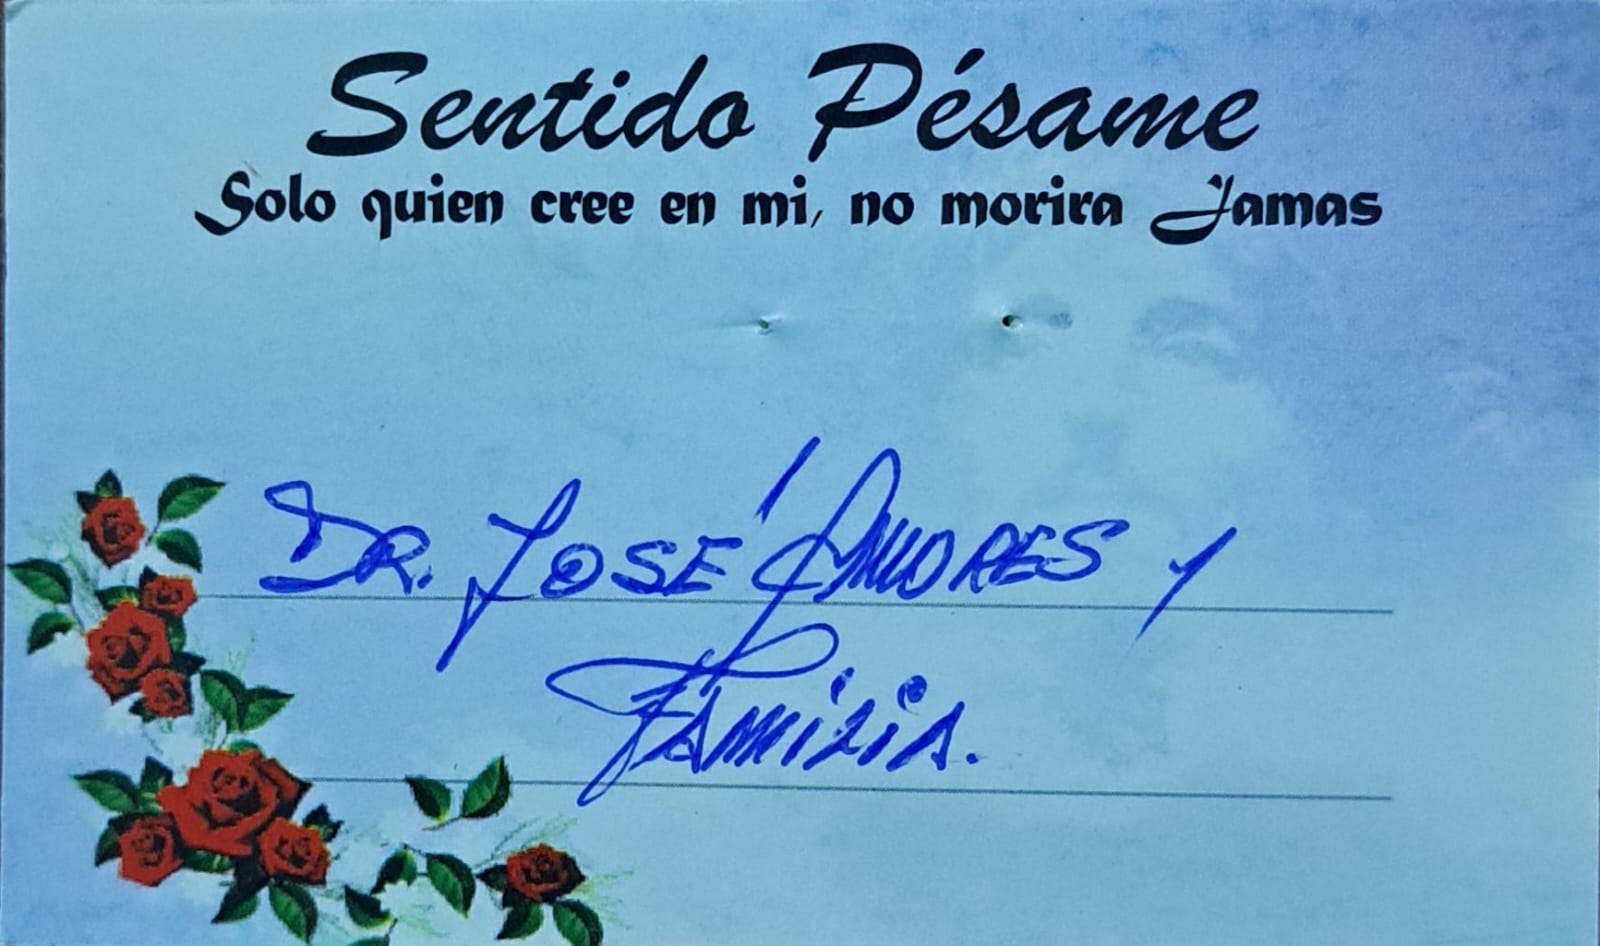 Sentido Pésame
Solo quien cree en mi, no morira Jamas
DR. JOSÉ AMORES Y
FAMILIA.